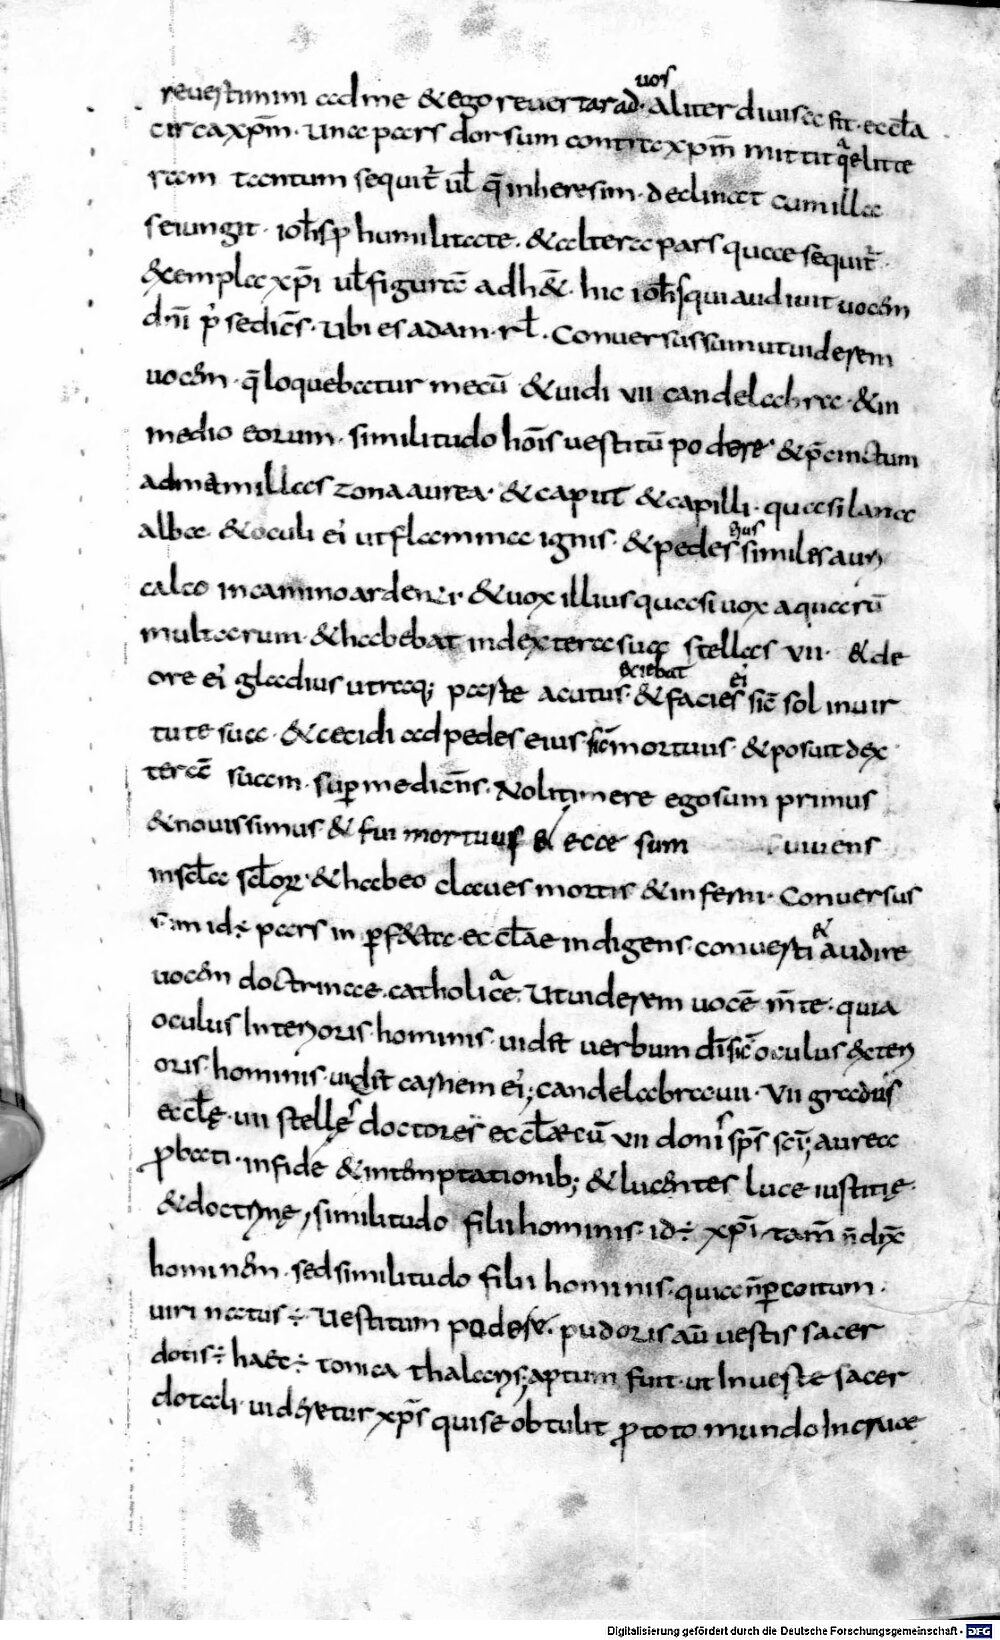 vos
reuestimini adme & ego reuertar ad · aliter diuisa fit · eccła
circa xp̄m · una pars dorsum contra xp̄m mittit
ream tantum sequit̄ uł q̄ in heresim · declinat cum illa
seiungit · ioħs p humilitate · & altera pars quae sequit̄ ·
exempla xp̄i uł figurā adh& · hic ioħs qui audiuit uocem
dn̄i p̓ sediēs · Ubi es adam · rł · Conuersus sum ut uiderem
uocem · q̄ loquebatur mecū & uidi vii candelabra · & in
medio eorum · similitudo hoīs uestitū podere · & p̄cinctum
ad mamillas zona aurea · & caput & capilli · quasi lana
alba · & oculi ei᾽ ut flamma ignis · & pedes similes auri
eius
calco in camino ardenti · & uox illius quasi uox aquarū
multarum · & habebat in dextera sua stellas vii · & de
ore ei᾽ gladius utraq; parte acutus · & facies sic̄ sol in uir
exiebat ei᾽
tute sua · & cecidi ad pedes eius sic̄ mortuus · & posuit dex
terā suam · sup me dicēs · Noli timere ego sum primus
& nouissimus · & fui mortuus & ecce sum uiuens
in scła scłoꝝ · & habeo claues mortis & inferni · Conuersus
sum id÷ pars in p̱fecta · ecctae indigens · conuerti & audire
uocem doctrinae · catholicae · Ut uiderem uocē m̄te · quia
oculus interioris · hominis · uid& uerbum dī sic̄ oculus exteri
oris · hominis · uid& carnem ei᾽; candelabra vii · Vii gradus
ecclę · vii stellę doctores ecctae cū vii donis sp̄s sc̄i; aurea
probati · in fide & in temptationib; & lucentes luce iustitię ·
& doctrinę, similitudo filii hominis · id÷ xp̄i · tam̄ n̄ dix̄
hominem · sed similitudo filii hominis · quia n̄ p̱ coitum ·
uiri natus ÷ Uestitum podere · pudoris aū uestis sacer
dotis ÷ haec ÷ tonica thalaris; aptum fuit · ut in ueste sacer
dotali · uideretur xp̄s qui se obtulit pro toto mundo in cruce
Digitalisierung gefördert durch die Deutsche Forschungsgemeinschaft - DFG